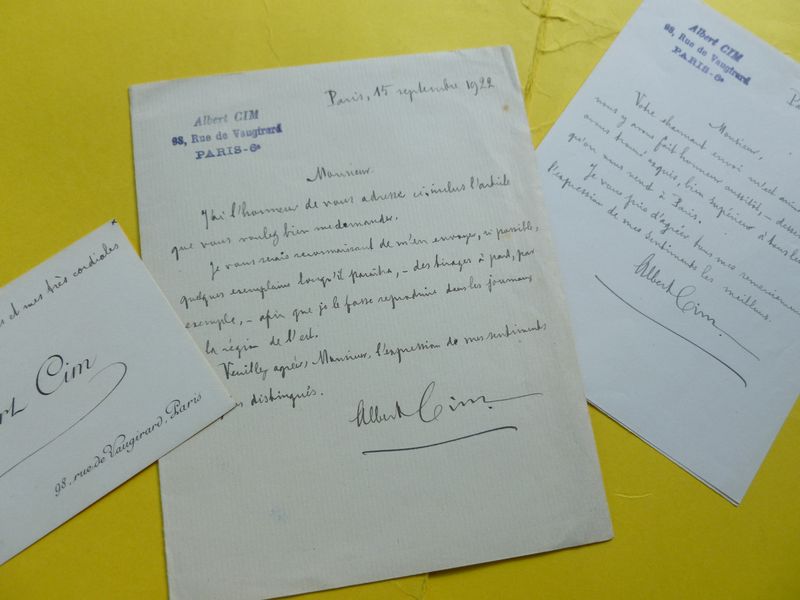 Albert CIM
98, Rue de Vaugirard
PARIS-6e
Paris, 15 septembre 1922
Monsieur.
J'ai l'honneur de vous adresser ci-inclus l'article
que vous voulez bien me demander.
Je vous serais reconnaissant de m'en envoyer, si possible,
quelques exemplaires lorsqu'il paraîtra, – des tirages à part, par
exemple, – afin que je le fasse reproduire dans les journaux
la région de l'est.
Veuillez agréer, Monsieur, l'expression de mes sentiments
distingués.
Albert Cim.
et mes très cordiales
Cim
98, rue de Vaugirard, Paris
Albert CIM
98, Rue de Vaugirard
PARIS-6e
Monsieur,
Votre charmant envoi m'est
nous y avons fait honneur aussitôt, –
avons trouvé exquis, bien supérieur à tous
qu'on nous vend à Paris.
Je vous prie d'agréer tous mes
l'expression de mes sentiments les meilleurs.
Albert Cim.